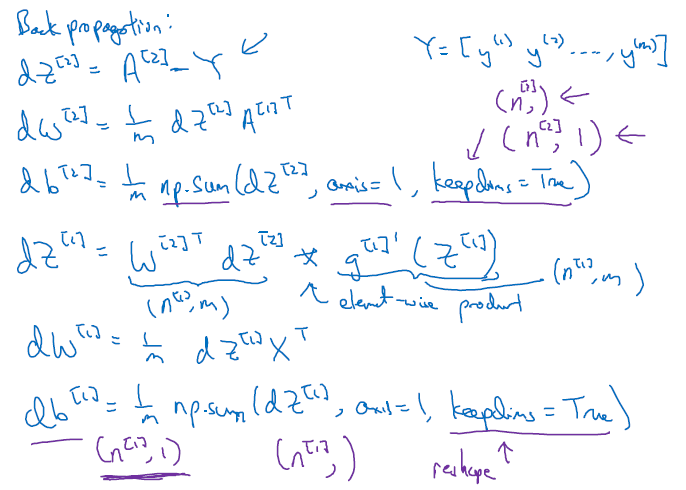 Back propagation:
dZ^[2] = A^[2] - Y ↙
Y = [y^(1) y^(2) ...., y^(m)]
dW^[2] = 1/m dZ^[2] A^[1]T
(n^[2],) ←
(n^[2], 1) ←
db^[2] = 1/m np.sum(dZ^[2], axis=1, keepdims=True)
dZ^[1] = W^[2]T dZ^[2] * g^[1]'(Z^[1])
(n^[1], m)
element-wise product
(n^[1], m)
dW^[1] = 1/m dZ^[1] X^T
db^[1] = 1/m np.sum(dZ^[1], axis=1, keepdims=True)
(n^[1], 1)
(n^[1],)
reshape ↑